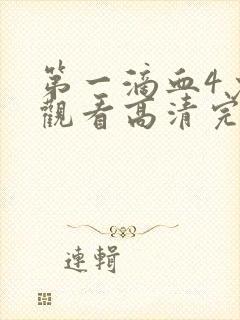 第一滴血4
觀看高清完
連輯